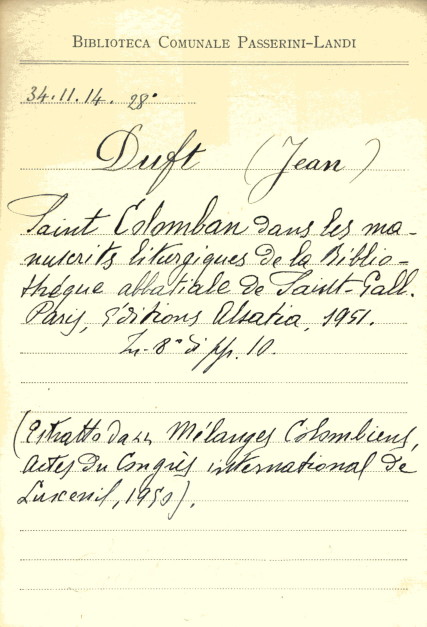 BIBLIOTECA COMUNALE PASSERINI-LANDI
34.11.14. 28°
Duft (Jean)
Saint Colomban dans les ma-
nuscrits liturgiques de la Biblio-
théque abbatiale de Saint-Gall.
Paris, Éditions Alsatia, 1951.
In-8° di pp. 10.
(Estratto da Mélanges Colombiens,
actes du Congrès international de
Luxeuil, 1950).